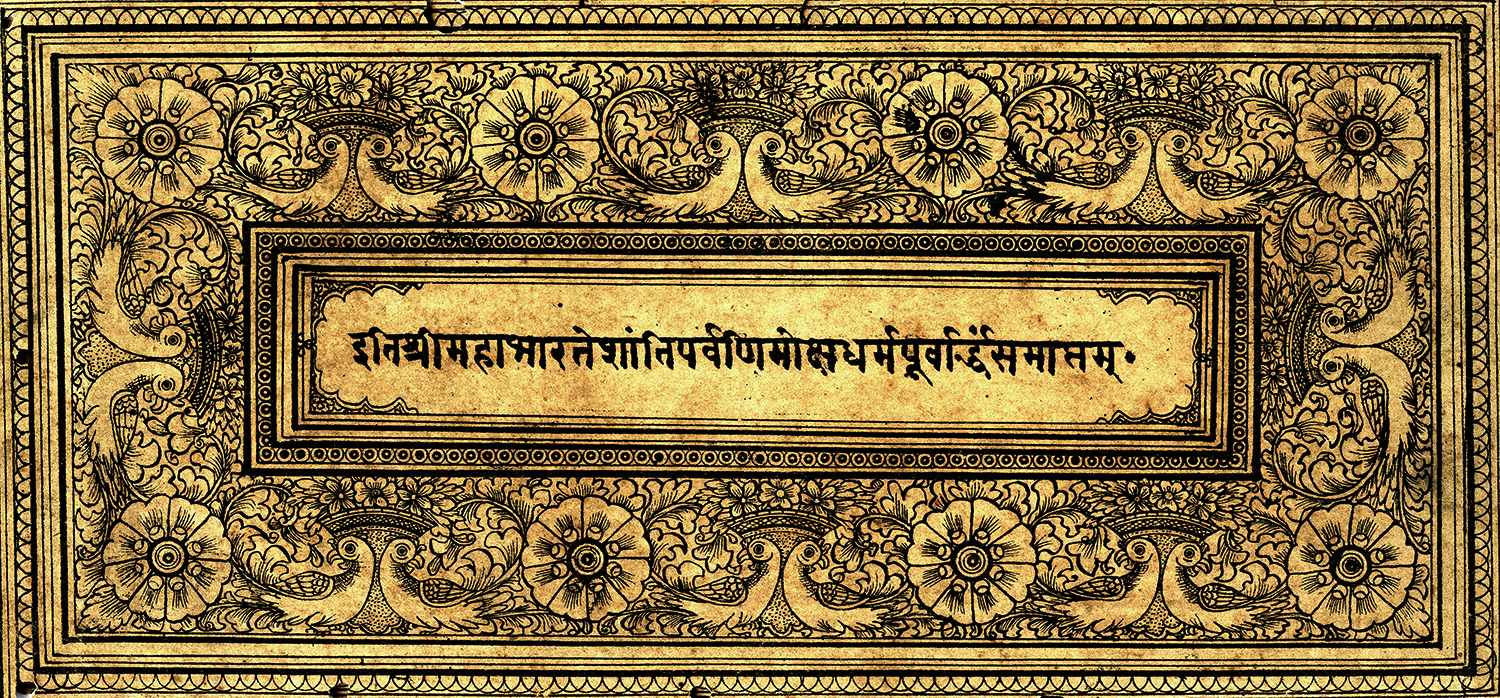 इतिश्रीमहाभारतेशांतिपर्वणिमोक्षधर्मपूर्वार्द्धंसमाप्तम्॰